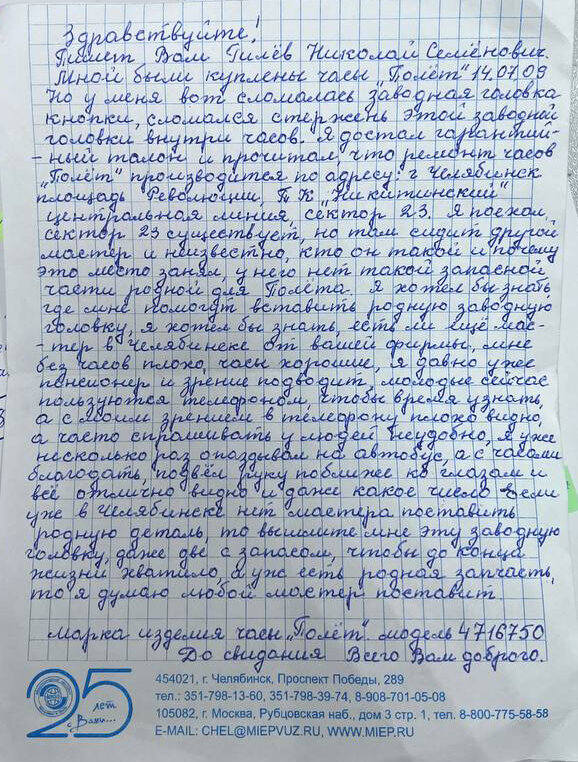 Здравствуйте!
Пишет Вам Гилёв Николай Семёнович.
Мной были куплены часы „Полёт" 14.07.09
Но у меня вот сломалась заводная головка
кнопки, сломался стержень этой заводной
головки внутри часов. Я достал гарантий-
-ный талон и прочитал, что ремонт часов
„Полёт" производится по адресу: г Челябинск
площадь Революции, Т.К „Никитинский"
центральная линия, сектор 23. Я поехал,
сектор 23 существует, но там сидит другой
мастер и неизвестно, кто он такой и почему
это место занял, у него нет такой запасной
части родной для Полёта. Я хотел бы знать
где мне помогут вставить родную заводную
головку, я хотел бы знать, есть ли ещё мас-
-тер в Челябинске от вашей фирмы, мне
без часов плохо, часы хорошие, я давно уже
пенсионер и зрение подводит, молодые сейчас
пользуются телефоном, чтобы время узнать,
а с моим зрением в телефону плохо видно,
а часто спрашивать у людей неудобно, я уже
несколько раз опаздывал на автобус, а с часами
благодать, подвёл руку поближе ко глазам и
всё отлично видно и даже какое число. Если
уже в Челябинске нет мастера поставить
родную деталь, то вышлите мне эту заводную
головку, даже две с запасом, чтобы до конца
жизни хватило, а уж есть родная запчасть,
то я думаю любой мастер поставит.
Марка изделия часы „Полёт". модель 4716750
До свидания Всего Вам доброго.
25 лет с Вами...
454021, г. Челябинск, Проспект Победы, 289
тел.: 351-798-13-60, 351-798-39-74, 8-908-701-05-08
105082, г. Москва, Рубцовская наб., дом 3 стр. 1, тел. 8-800-775-58-58
E-MAIL: CHEL@MIEPVUZ.RU, WWW.MIEP.RU